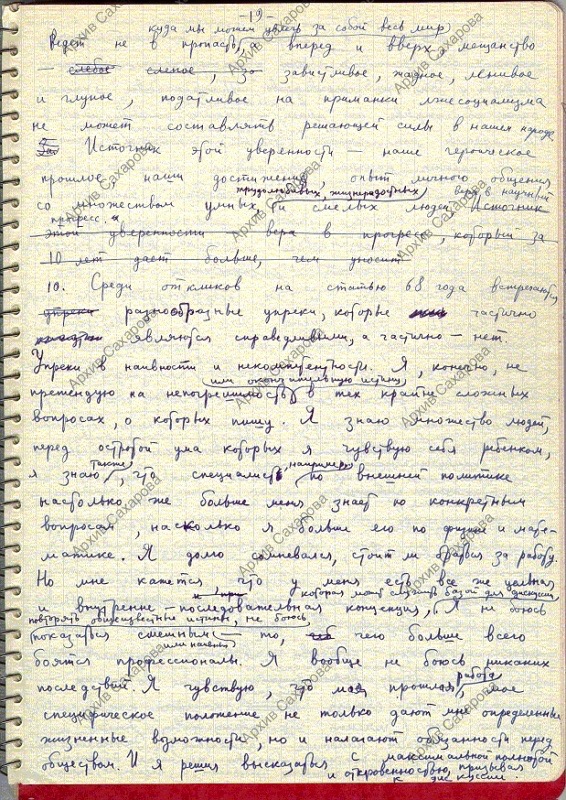 - 19 -
куда мы можем увлечь за собой весь мир,
ведет не в пропасть, а вперед и вверх, мещанство
— слепое, завистливое, жадное, ленивое
и глупое, податливое на приманки лжесоциализма
не может составлять решающей силы в нашем народе.
Источник этой уверенности — наше героическое
прошлое, наши достижения, опыт личного общения
трудолюбивых, жизнерадостных, вера в научный
со множеством умных, и смелых людей. Источник
прогресс, и
этой уверенности вера в прогресс, который за
10 лет дает больше, чем уносит
10. Среди откликов на статью 68 года встречаются
упреки разнообразные упреки, которые частично
являются справедливыми, а частично — нет.
Упреки в наивности и некомпетентности. Я, конечно, не
или окончательную истину,
претендую на непогрешимость в тех крайне сложных
вопросах, о которых пишу. Я знаю множество людей,
перед остротой ума которых я чувствую себя ребенком,
также, например,
я знаю, что специалист по внешней политике
настолько же больше меня знает по конкретным
вопросам, насколько я больше его по физике и мате-
матике. Я долго сомневался, стоит ли браться за работу.
Но мне кажется что у меня есть все же цельная
которая может служить базой для дискуссии,
и внутренне-последовательная концепция, Я не боюсь
повторять общеизвестные истины, не боюсь
показаться смешным — то, чего больше всего
или наивным
боятся профессионалы. Я вообще не боюсь никаких
работа,
последствий. Я чувствую, что моя прошлая, мое
специфическое положение не только дают мне определенные
жизненные возможности, но и налагают обязанности перед
обществом. И я решил высказаться с максимальной полнотой
и откровенностью, призывая
к дискуссии.
Архив Сахарова
Архив Сахарова
Архив Сахарова
Архив Сахарова
Архив Сахарова
Архив Сахарова
Архив Сахарова
Архив Сахарова
Архив Сахарова
Архив Сахарова
Архив Сахарова
Архив Сахарова